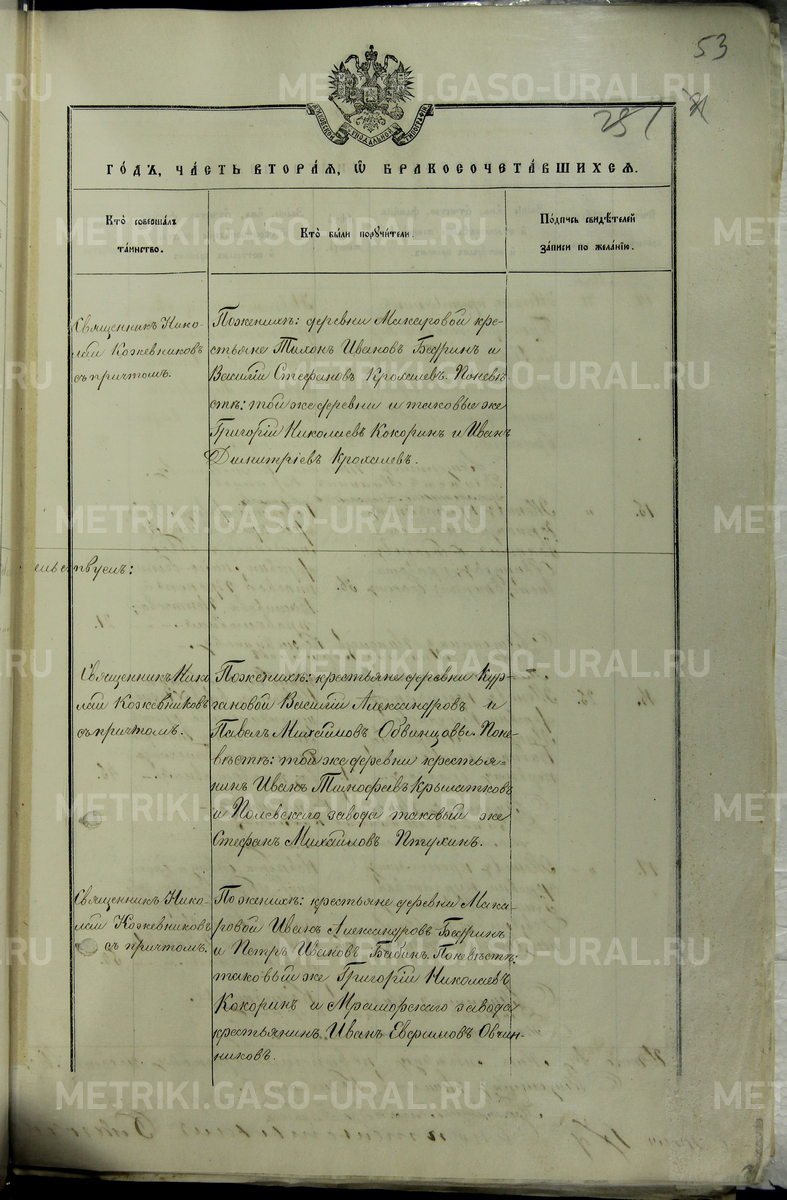 53
251
МОСКОВСКОЙ СУНОДАЛЬНОЙ ТИПОГРАФІИ
ГОДЪ, ЧАСТЬ ВТОРАЯ, Ѡ БРАКОСОЧЕТАВШИХСЯ.
Кто совершалъ
таинство.
Кто были поручители.
Подпись свидѣтелей
записи по желанію.
Священникъ Нико-
лай Кожевниковъ
съ причтомъ.
По женихѣ: деревни Макаровой кре-
стьяне Тихонъ Ивановъ Бедринъ и
Василій Стефановъ Крохалевъ. По невѣ-
стѣ: той же деревни и таковые же
Григорій Николаевъ Кокоринъ и Иванъ
Димитріевъ Крохалевъ.
ельствуемъ:
Священникъ Нико
лай Кожевниковъ
съ причтомъ.
По женихѣ: крестьяне деревни Кур-
гановой Василій Александровъ и
Павелъ Михайловъ Обвинцовы. По не-
вѣстѣ: той же деревни крестья-
нинъ Иванъ Тимофеевъ
и Полевскаго завода таковый же
Стефанъ Михайловъ Птухинъ.
Священникъ Нико-
лай Кожевниковъ
съ причтомъ.
По женихѣ: крестьяне деревни Мака-
ровой Иванъ Александровъ Бедринъ
и Петръ Ивановъ Бабинъ. По невѣстѣ:
таковый же Григорій Николаевъ
Кокоринъ и Мраморскаго завода
крестьянинъ Иванъ Евфимовъ Овчин-
никовъ.
METRIKI.GASO-URAL.RU